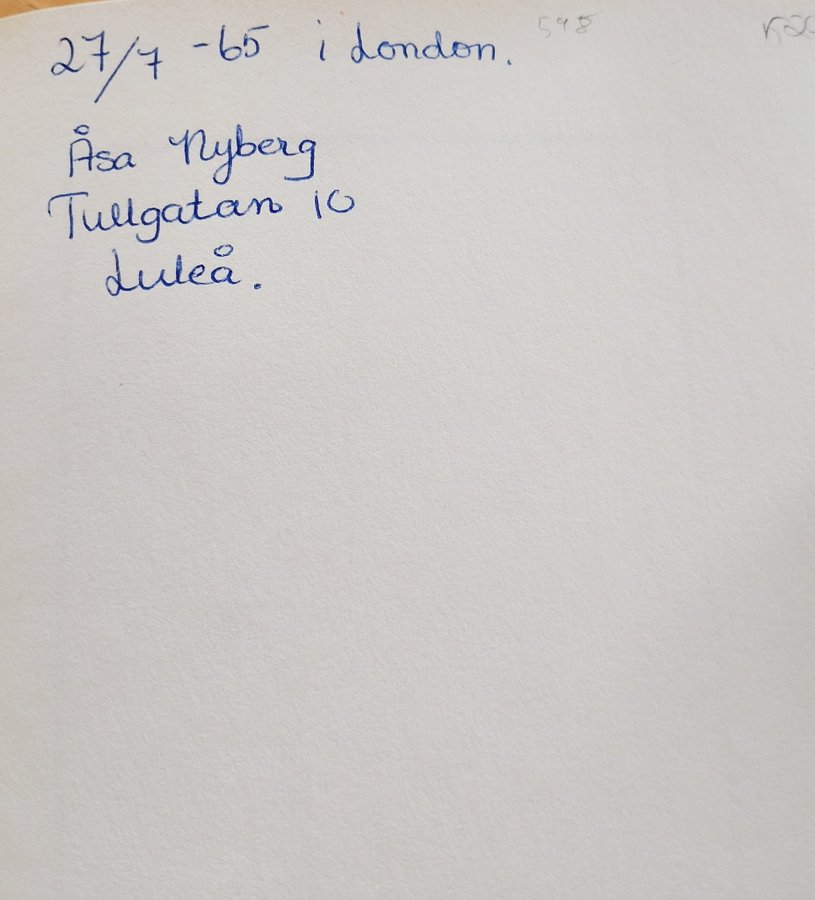 27/7 -65 i London.
Åsa Nyberg
Tullgatan 10
Luleå.